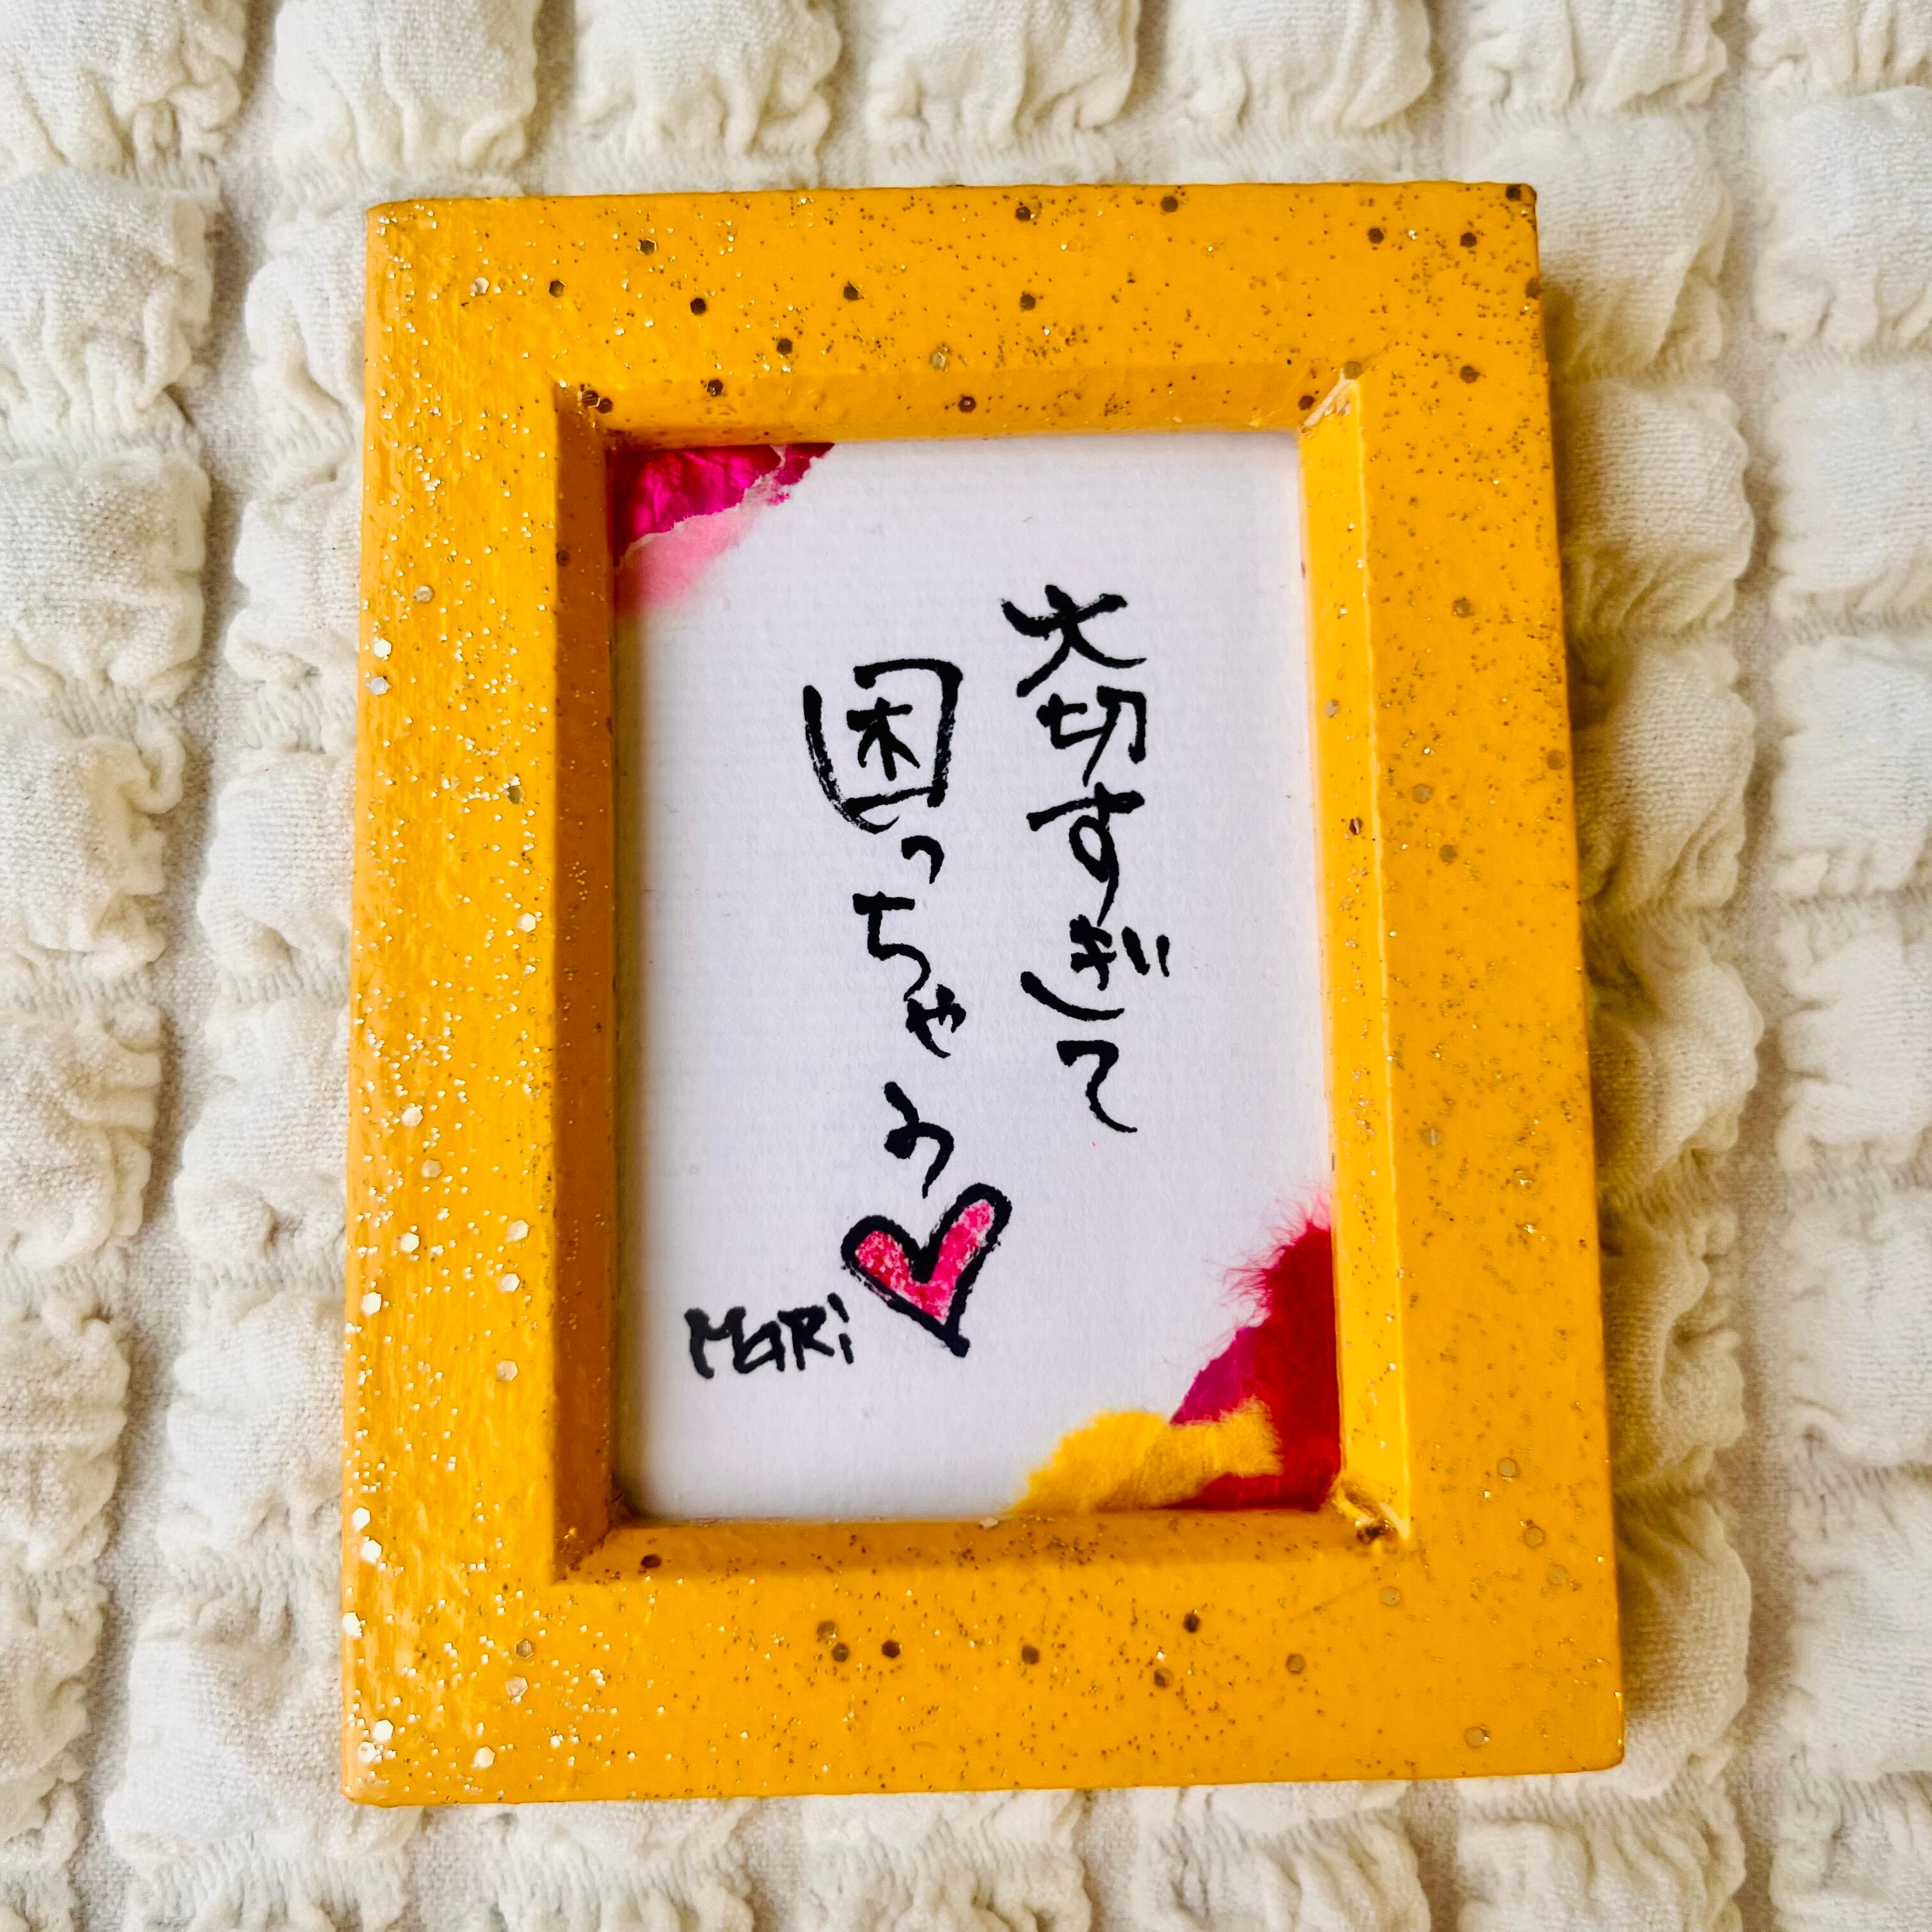 大切すぎて
困っちゃう
MARi